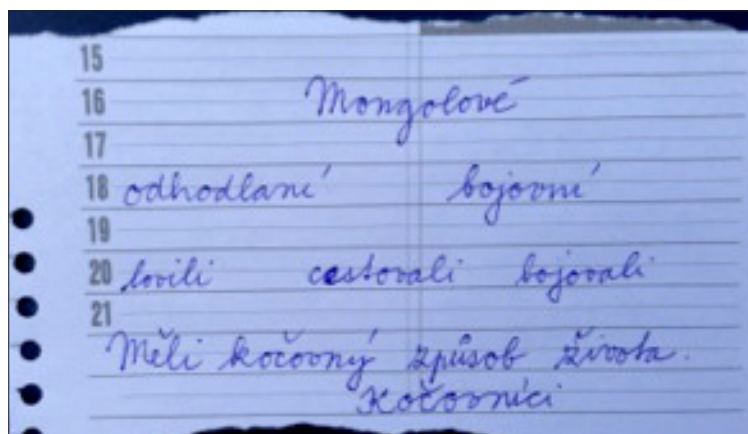 15
16 Mongolové
17
18 odhodlaní bojovní
19
20 lovili cestovali bojovali
21
Měli kočovný způsob života.
Kočovníci